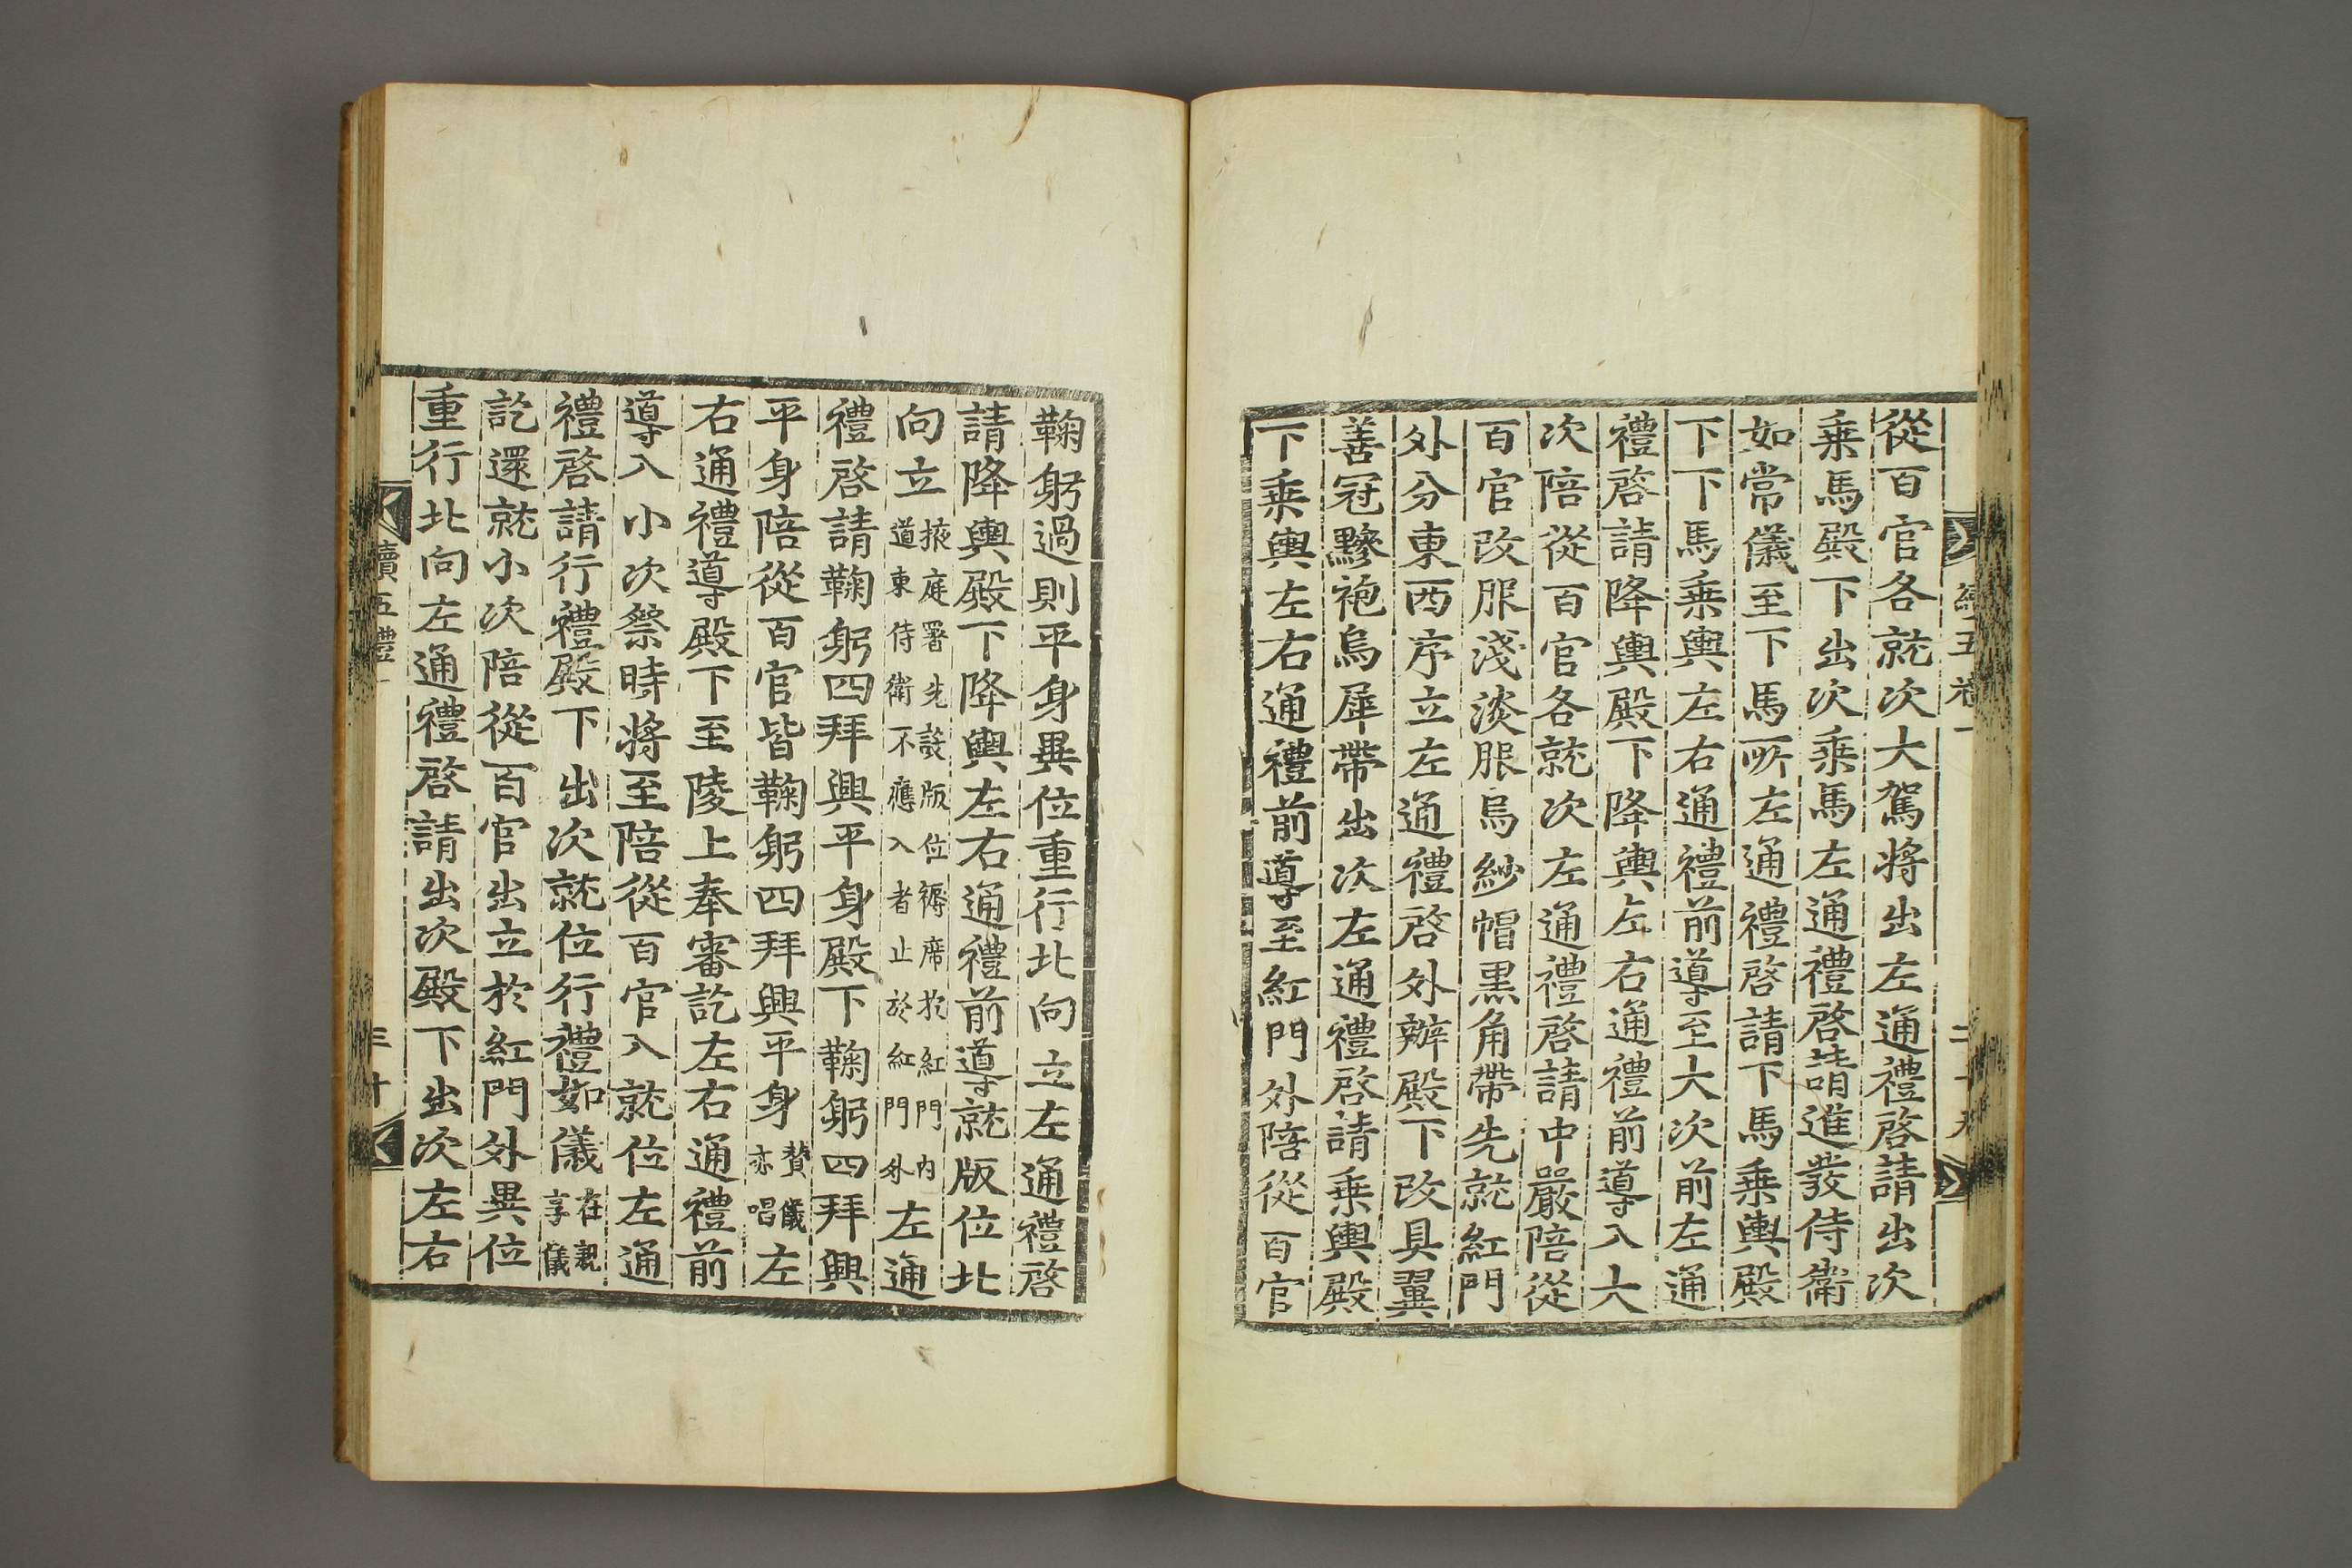 從百官各就次大駕將出左通禮啓請出次
乗馬殿下出次乗馬左通禮啓請進發侍衛
如常儀至下馬所左通禮啓請下馬乗輿殿
下下馬乗輿左右通禮前導至大次前左通
禮啓請降輿殿下降輿左右通禮前導入大
次陪從百官各就次左通禮啓請中嚴陪從
百官改服淺淡服烏紗帽黒角帶先就紅門
外分東西序立左通禮啓外辦殿下改具翼
善冠黲袍烏犀帶出次左通禮啓請乗輿殿
下乗輿左右通禮前導至紅門外陪從百官
鞠躬過則平身異位重行北向立左通禮啓
請降輿殿下降輿左右通禮前導就版位北
向立掖庭署先設版位褥席於紅門內道東侍衛不應入者止於紅門外左通
禮啓請鞠躬四拜興平身殿下鞠躬四拜興
平身陪從百官皆鞠躬四拜興平身賛儀亦唱左
右通禮導殿下至陵上奉審訖左右通禮前
導入小次祭時將至陪從百官入就位左通
禮啓請行禮殿下出次就位行禮如儀在親享儀
訖還就小次陪從百官出立於紅門外異位
重行北向左通禮啓請出次殿下出次左右
續五禮
三十